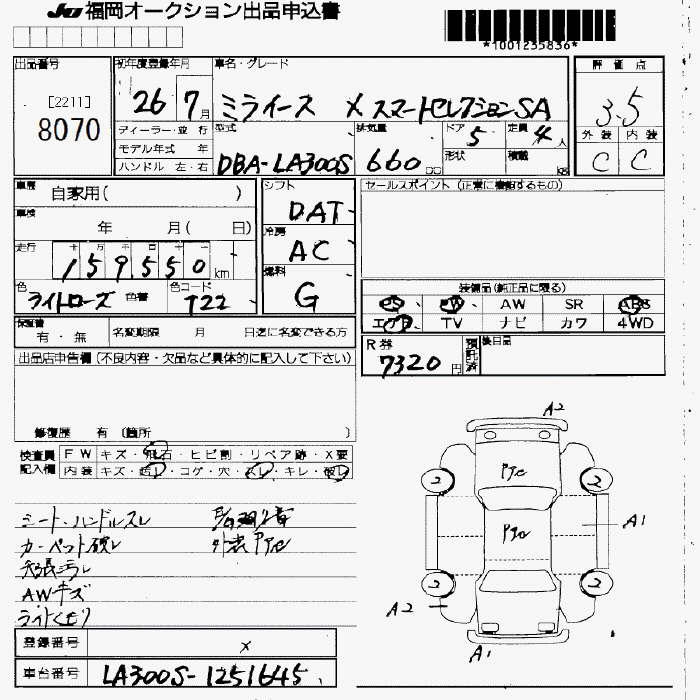 JU 福岡オークション出品申込書
*1001235836*
出品番号 初年度登録年月 車名・グレード 評価点
[2211]
8070
26 7月 ミライース X スマートセレクションSA 3.5
ディーラー・並行 型式 排気量 ドア 5 定員 4人 外装 内装
モデル年式 年 形状 積載 kg
ハンドル 左・右 DBA-LA300S 660 cc C C
車歴 自家用( ) シフト DAT セールスポイント (正常に機能するもの)
車検 年 月( 日) 冷房 AC
走行 十 万 千 百 十
159550 km 燃料 G
色 ライトローズ 色替 色コード T22
装備品(純正品に限る)
PS PW AW SR ABS
エアB TV ナビ カワ 4WD
保証書 有・無 名変期限 月 日迄に名変できる方
R券 7320円 預託済 後日品
出品店申告欄(不良内容・欠品など具体的に記入して下さい)
修復歴 有 〔箇所 〕
検査員記入欄 FW キズ・飛石・ヒビ割・リペア跡・X要
内装 キズ・汚レ・コゲ・穴・スレ・キレ・破レ
シート・ハンドルスレ
カーペット破レ 外装 Pアセ
天張汚レ
AWキズ
ライトくもり
登録番号 X
車台番号 LA300S-1251645
A2
Pアセ
2 2
Pアセ A1
2 2
A2
A1